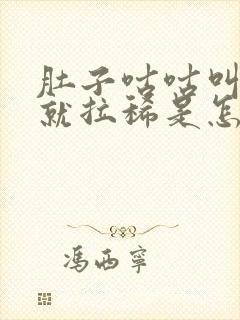 肚子咕咕叫
就拉稀是怎
馮西寧